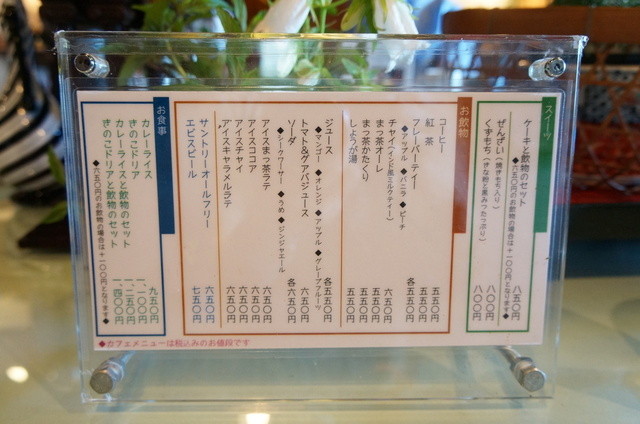 スイーツ
ケーキと飲物のセット 八五〇円
◆六五〇円のお飲物の場合は+一〇〇円となります◆
ぜんざい(焼きもち入り) 八〇〇円
くずもち(きな粉と黒みつたっぷり) 八〇〇円
お飲物
コーヒー 五五〇円
紅茶 五五〇円
フレーバーティー 各五五〇円
◆アップル ◆バニラ ◆ピーチ
チャイ(インド風ミルクティー) 六五〇円
まっ茶オレ 五五〇円
まっ茶かたくり 五五〇円
しょうが湯 五五〇円
ジュース 各五五〇円
◆マンゴー ◆オレンジ ◆アップル ◆グレープフルーツ
トマト&グアバジュース 六五〇円
ソーダ 各六五〇円
◆シークワーサー ◆うめ ◆ジンジャエール
アイスまっ茶ラテ 六五〇円
アイスココア 六五〇円
アイスチャイ 六五〇円
アイスキャラメルラテ 六五〇円
サントリーオールフリー 六五〇円
エビスビール 七五〇円
お食事
カレーライス 九五〇円
きのこドリア 一、一〇〇円
カレーライスと飲物のセット 一、二五〇円
きのこドリアと飲物のセット 一、四〇〇円
◆六五〇円のお飲物の場合は+一〇〇円となります◆
◆カフェメニューは税込みのお値段です